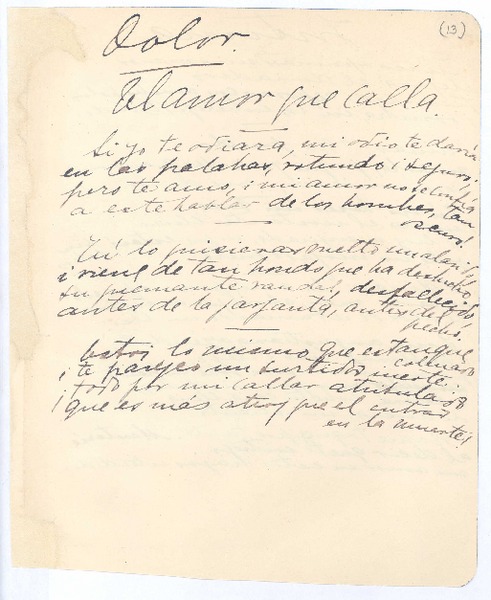 (13)
Dolor.
El amor que calla.
Si yo te odiara, mi odio te daría
en las palabras, rotundo i seguro;
pero te amo, i mi amor no se confía
a este hablar de los hombres, tan
oscuro!
Tú lo quisieras vuelto un alarido,
i viene de tan hondo que ha deshecho
su quemante raudal, desfallecido,
antes de la garganta, antes del
pecho.
Estoi lo mismo que estanque
colmado
i te parezco un surtidor inerte.
¡todo por mi callar atribulado
que es más atroz que el entrar
en la muerte!